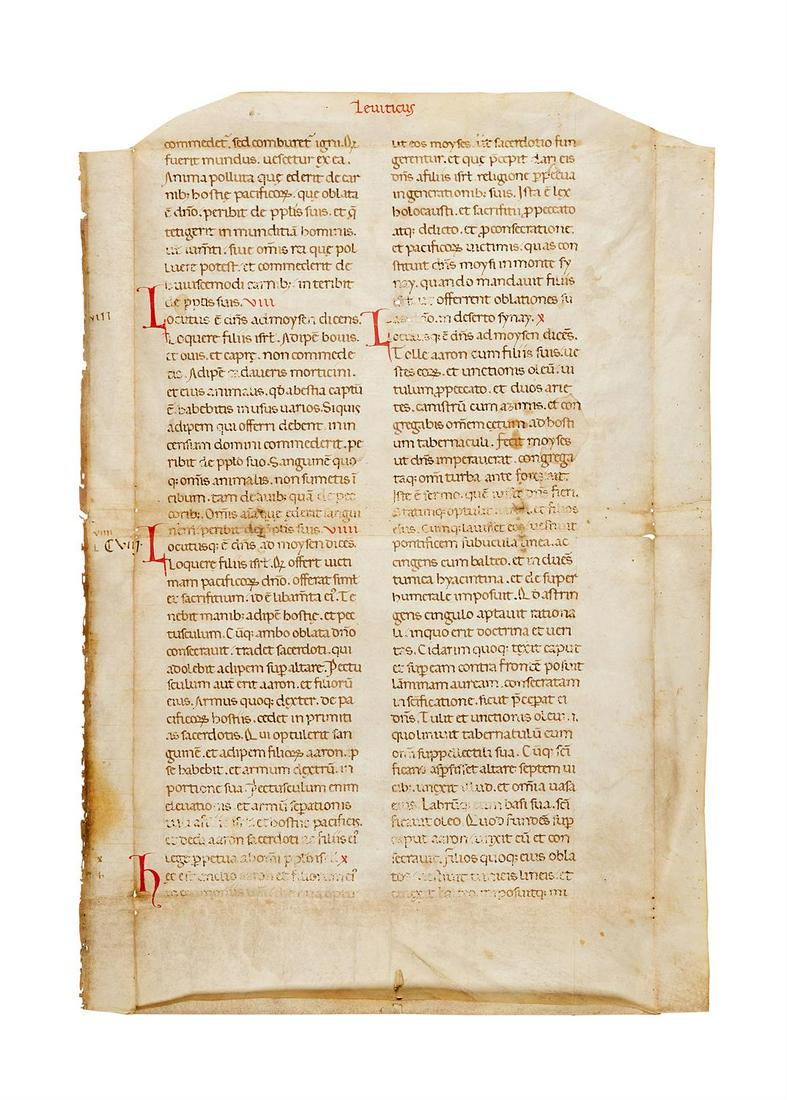 Leuiticus
commedet᷑. sed comburet᷑ igni. Q̅
fuerit mundus. uescetur ex ea.
Anima polluta que ederit de car
nib; hostie pacificoꝝ. que oblata
ē dn̄o. peribit de pp̄lis suis. et q̄
tetigerit inmunditiā hominis.
uł iumti. siue om̄is rei que pol
luere potest. et commederit de
huiuscemodi carnib; interibit
de pp̄lis suis. VIII
VIII
Locutus ē dn̄s ad moysen dicens.
Loquere filiis isrł. Adipē bouis.
et ouis. et capre. non commede
tis. Adipē cadaueris morticini.
et eius animalis. qd̄ abestia captū
ē habebitis in usus uarios. Siquis
adipem qui offerri debent. in in
censum domini commederit. pe
ribit de pp̄lo suo. Sanguinē quo
q; om̄is animalis. non sumetis ī
cibum. tam de auib; quā de pec
corib;. Om̄is
peribit de suis. VIIII
CViij.
Locutusq; ē dn̄s ad moysen dicēs.
Loquere filiis isrł. Q̅ offert uicti
mam pacificoꝝ dn̄o. offerat simł
et sacrificium. id ē libam̄ta ei᷒. Te
nebit manib; adipē hostie. et pec
tusculum. Cūq; ambo oblata dn̄o
consecrauit. tradet sacerdoti. qui
adolebit adipem sup̄ altare. Pectu
sculum aut̄ erit aaron. et filiorū
eius. Armus quoq; dexter. de pa
cificoꝝ hostiis. cedet in primiti
as sacerdotis. Qui optulerit san
guinē. et adipem filioꝝ aaron. ip
se habebit. et armum dextrū. in
portione sua. Pectusculum enim
eleuationis. et armū sep̄ationis
et hostiis pacificis.
et dedi aaron sacerdoti ac filiis ei᷒
lege p̄petua abom̄i pp̄lo isrł. X
X
Hec est unctio aaron et filiorum ei᷒
ut eos moyses. ut sacerdotio fun
gerentur. et que p̄cepit dari eis
dn̄s afiliis isrł religione p̄petua
in generationib; suis. Ista ē lex
holocausti. et sacrifitii. p̄ peccato
atq; delicto. et p̄ consecratione.
et pacificoꝝ uictimis. quas con
stituit dn̄s moysi in monte sy
nay. quando mandauit filiis
offerrent oblationes su
as dn̄o. in deserto synay. X
Locutusq; ē dn̄s ad moysen dicēs.
Tolle aaron cum filiis suis. ue
stes eoꝝ. et unctionis oleū. ui
tulum p̄ peccato. et duos arie
tes. canistrū cum azimis. et con
gregabis omnem cetum ad hosti
um tabernaculi. Fecit moyses
ut dn̄s imperauerat. congrega
taq; om̄i turba ante fores ait.
Iste ē sermo. quē iussit dn̄s fieri.
Statimq; optulit
eius. Cumq; lauisset eos uestiuit
pontificem subucula linea. ac
cingens eum balteo. et induēs
tunica hyacintina. et de super
humerale imposuit. Qd̄ astrin
gens cingulo aptauit rationa
li. inquo erit doctrina et ueri
tas. Cidarim quoq; texit caput
et sup̄ eam contra frontē posuit
lāminam auream. consecratam
in scificatione. sicut p̄cepat ei
dn̄s. Tulit et unctionis oleum.
quo liniuit tabernaculū cum
om̄i suppellectili sua. Cūq; sc̄i
ficans aspsisset altare septem ui
cib;. unxit illud. et om̄ia uasa
eius. Labrūq; cum basi sua. sc̄i
ficauit oleo. Quod fundēs sup̄
caput aaron. unxit eū et con
secrauit. Filios quoq; eius obla
tos uestiuit tunicis lineis. et
cinxit balteo. imposuitq; mi